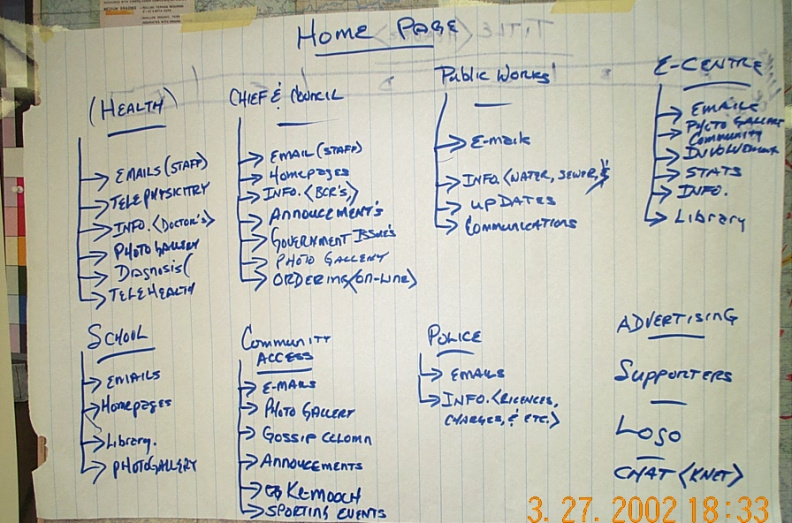 HOME PAGE
(HEALTH)
EMAILS (STAFF)
TELEPHYSICITRY
INFO. <DOCTOR'S>
PHOTO GALLERY
Diagnosis(
TELEHEALTH
CHIEF & COUNCIL
EMAIL (STAFF)
Homepages
INFO. <BCR'S>
ANNOUCEMENT'S
GOVERNMENT ISSUE'S
PHOTO GALLERY
ORDERING <ON-LINE>
Public Works
E-mails
INFO. <WATER, SEWER,
UPDATES
COMMUNICATIONS
E-CENTRE
EMAILS
PHOTO GALLERY
Community
INVOLVEMENT
STATS
INFO.
Library
SCHOOL
EMAILS
Homepages
Library.
PHOTOGALLERY
Community
ACCESS
E-MAILS
PHOTO GALLERY
GOSSIP COLOMN
ANNOUCEMENTS
KE-MOOCH
SPORTING EVENTS
POLICE
EMAILS
INFO. <LICENCES,
CHARGES, & ETC.>
ADVERTISING
SUPPORTERS
LOGO
CHAT <KNET>
3. 27. 2002 18:33